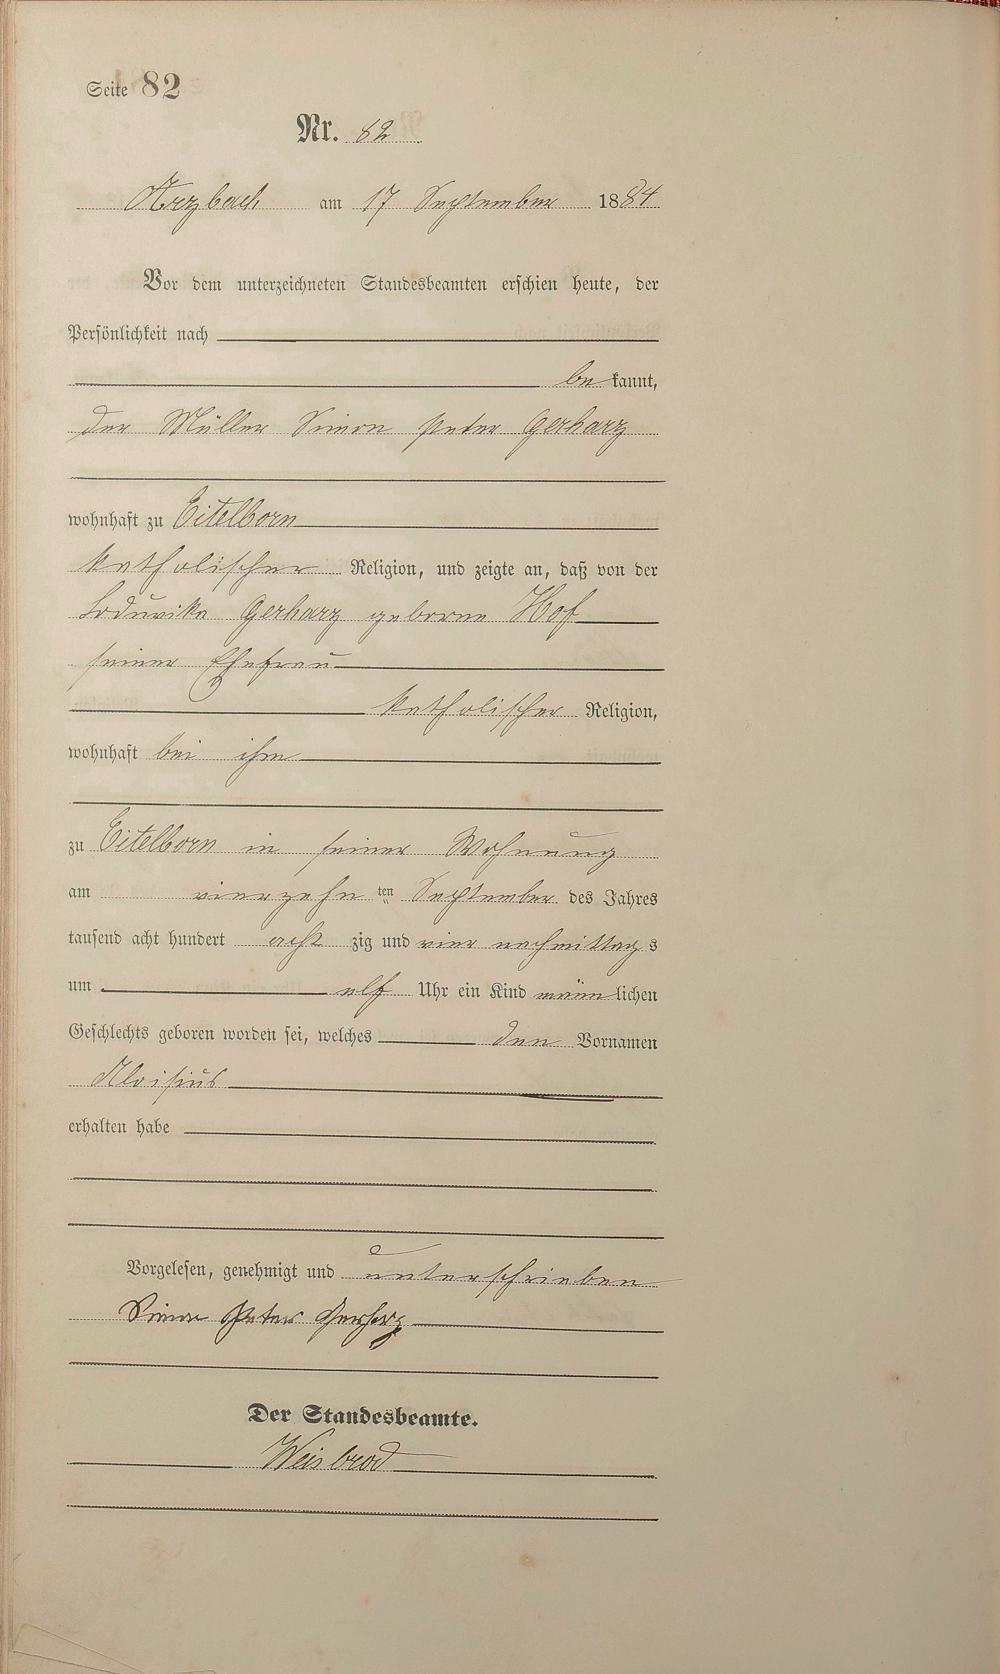 Seite 82
Nr. 82
Arzbach am 17 September 1884
Vor dem unterzeichneten Standesbeamten erschien heute, der
Persönlichkeit nach
bekannt,
der Müller Simon Peter Gerharz
wohnhaft zu Eitelborn
katholischer Religion, und zeigte an, daß von der
Lodwika Gerharz geborne Hof
seiner Ehefrau
katholischer Religion,
wohnhaft bei ihm
zu Eitelborn in seiner Wohnung
am vierzehn ten September des Jahres
tausend acht hundert achtzig und vier nachmittags
um elf Uhr ein Kind männlichen
Geschlechts geboren worden sei, welches den Vornamen
Aloisius
erhalten habe
Vorgelesen, genehmigt und unterschrieben
Simon Peter Gerharz
Der Standesbeamte.
Weisbrod